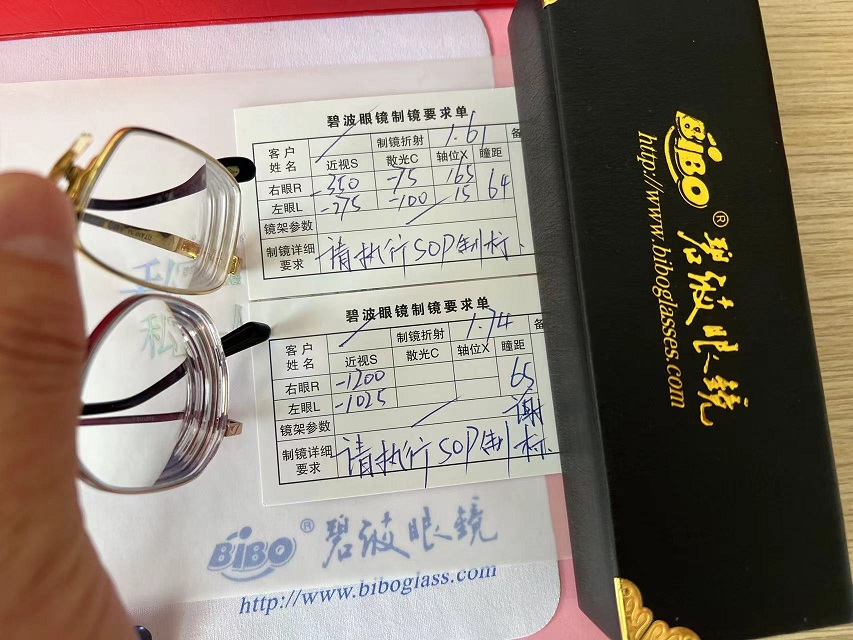 碧波眼镜制镜要求单
客户姓名
制镜折射 1.61 备
近视S 散光C 轴位X 瞳距
右眼R -350 -75 165 64
左眼L -275 -100 15
镜架参数
制镜详细要求 请执行SOP制标、
碧波眼镜制镜要求单
客户姓名
制镜折射 1.74 备
近视S 散光C 轴位X 瞳距
右眼R -1200 65
左眼L -1025
镜架参数 谢
制镜详细要求 请执行SOP制标、
BiBO®碧波眼鏡
http://www.biboglass.com
BiBO®碧波眼鏡
http://www.biboglasses.com